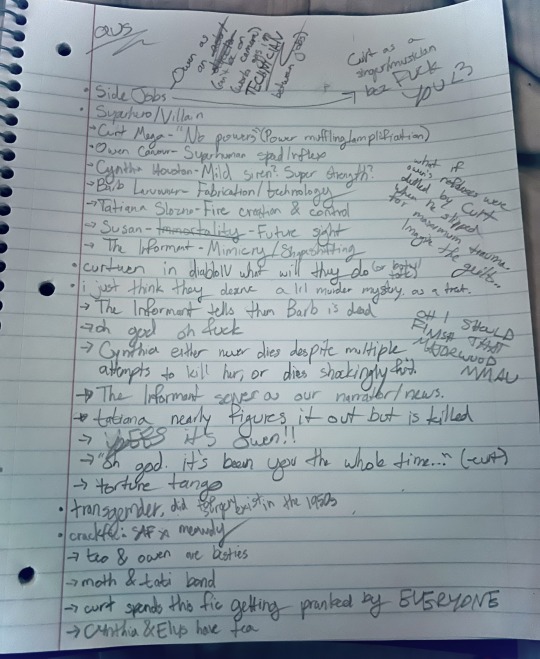 Owen as
an
(won't be on
camera)
(works gigs in
TECHNICALLY
between jobs)
Curt as a
singer/musician
bcz FUCK
YOU <3
• Side Jobs
• Superhero/Villain
→ Curt Mega - "No powers" (Power muffling/amplification)
→ Owen Carvour - Superhuman speed/reflex
→ Cynthia Houston - Mild siren? Super strength?
→ Barb Larvernor - Fabrication/technology
→ Tatiana Slozno - Fire creation & control
→ Susan - Immortality - Future sight
→ The Informant - Mimicry/Shapeshifting
what if
owen's reflexes were
dulled by Curt
when he slipped
for maximum trauma
imagine the guilt..
• curtwen in diabolV what will they do (or
• i just think they deserve a lil murder mystery. as a treat.
→ The Informant tells them Barb is dead
→ oh god oh fuck
→ Cynthia either never dies despite multiple
attempts to kill her, or dies shockingly first.
OH I SHOULD
FINISH THAT
MMAU
→ The Informant serves as our narrator/news.
→ tatiana nearly figures it out but is killed
→ it's Owen!!
→ "oh god. it's been you the whole time..." (-curt)
→ torture tango
• transgender, did exist in the 1950s
• crackfic: SAF x
→ & owen are besties
→ moth & tati bond
→ curt spends this fic getting pranked by EVERYONE
→ Cynthia & have tea